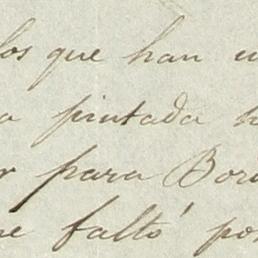 los que han
pintada
para Bor
faltó po